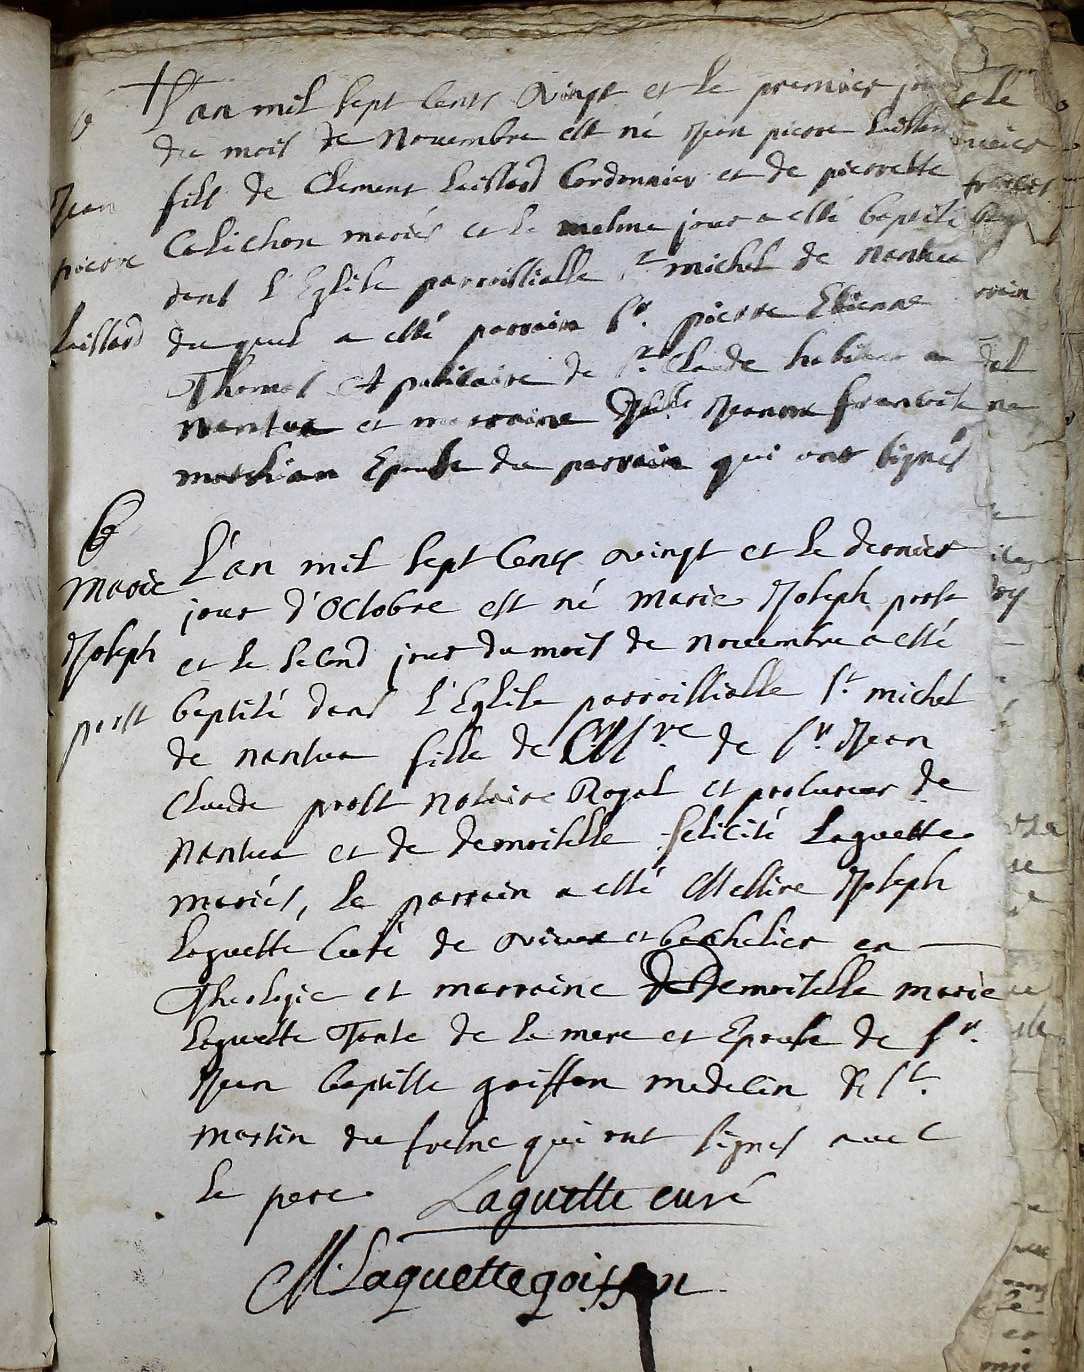 L'an mil sept cents vingt et le premier jour
du mois de Novembre est né Jean pierre Laissard
fils de Clement Laissard Cordonnier et de pierrette
Calichon mariés et le mesme jour a esté baptisé
dans l'Eglise parroissialle St michel de nantua
du quel a esté parrain Sr. pierre Etienne
Thomas Apoticaire de St. Claude habitant a
Nantua et marraine Dlle Jeanne francoise
Epouse du parrain qui ont signés
Jean
pierre
Laissard
B
Marie
Joseph
prost
L'an mil sept Cents vingt et le dernier
jour d'Octobre est né Marie Joseph prost
et le second jour du mois de novembre a esté
baptisé dans l'Eglise parroissialle St. michel
de nantua fille de de Sr. Jean
Claude prost Notaire Royal et procureur de
Nantua et de demoiselle felicité Laguette
mariés, le parrain a esté Messire Joseph
Laguette Curé de et bachelier en
Theologie et marraine Demoiselle marie
Laguette Tante de la mere et Epouse de Sr.
Jean baptiste goiffon medecin de St.
martin du fresne qui ont signés avec
le pere Laguette curé
M. Laguette goiffon